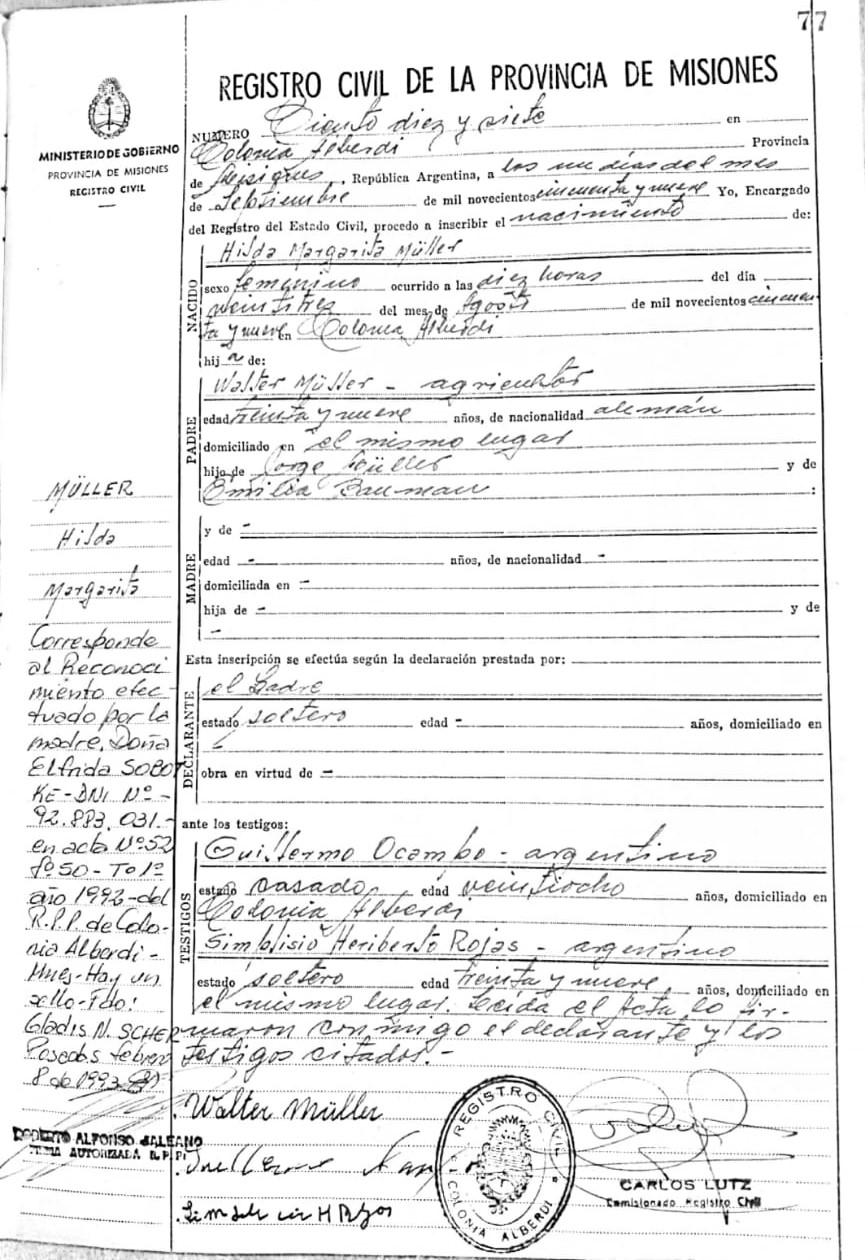 77
REGISTRO CIVIL DE LA PROVINCIA DE MISIONES
MINISTERIO DE GOBIERNO
PROVINCIA DE MISIONES
REGISTRO CIVIL
NUMERO Ciento diez y siete en
Colonia Alberdi Provincia
de Misiones, República Argentina, a los un días del mes
de Septiembre de mil novecientos cincuenta y nueve Yo, Encargado
del Registro del Estado Civil, procedo a inscribir el nacimiento de:
NACIDO
Hilda Margarita Müller
sexo femenino ocurrido a las diez horas del día
veintitres del mes de Agosto de mil novecientos cincuen-
ta y nueve en Colonia Alberdi
hij a de:
PADRE
Walter Müller - agricultor
edad treinta y nueve años, de nacionalidad alemán
domiciliado en el mismo lugar
hijo de Jorge Müller y de
Emilia Bauman :
MADRE
y de -
edad - años, de nacionalidad -
domiciliada en -
hija de - y de
-
Esta inscripción se efectúa según la declaración prestada por:
DECLARANTE
el Padre
estado soltero edad - años, domiciliado en
obra en virtud de -
ante los testigos:
TESTIGOS
Guillermo Ocampo - argentino
estado casado edad veintiocho años, domiciliado en
Colonia Alberdi
Simplisio Heriberto Rojas - argentino
estado soltero edad treinta y nueve años, domiciliado en
el mismo lugar. Leída el Acta lo fir-
maron conmigo el declarante y los
testigos citados.-
Walter Müller
REGISTRO CIVIL
COLONIA ALBERDI
CARLOS LUTZ
Comisionado Registro Civil
MÜLLER
Hilda
Margarita
Corresponde
al Reconoci
miento efec-
tuado por la
madre, Doña
Elfrida SOBOT
KE-DNI Nº-
92.883.031.-
en acta Nº52
fº50-Tº1º
año 1992-del
R.P.P. de Colo-
nia Alberdi-
Mnes-Hay un
sello-Fdo:
Gladis N. SCHER
Posadas febrero
8 de 1993
ROBERTO ALFONSO GALEANO
FIRMA AUTORIZADA R.P.P.